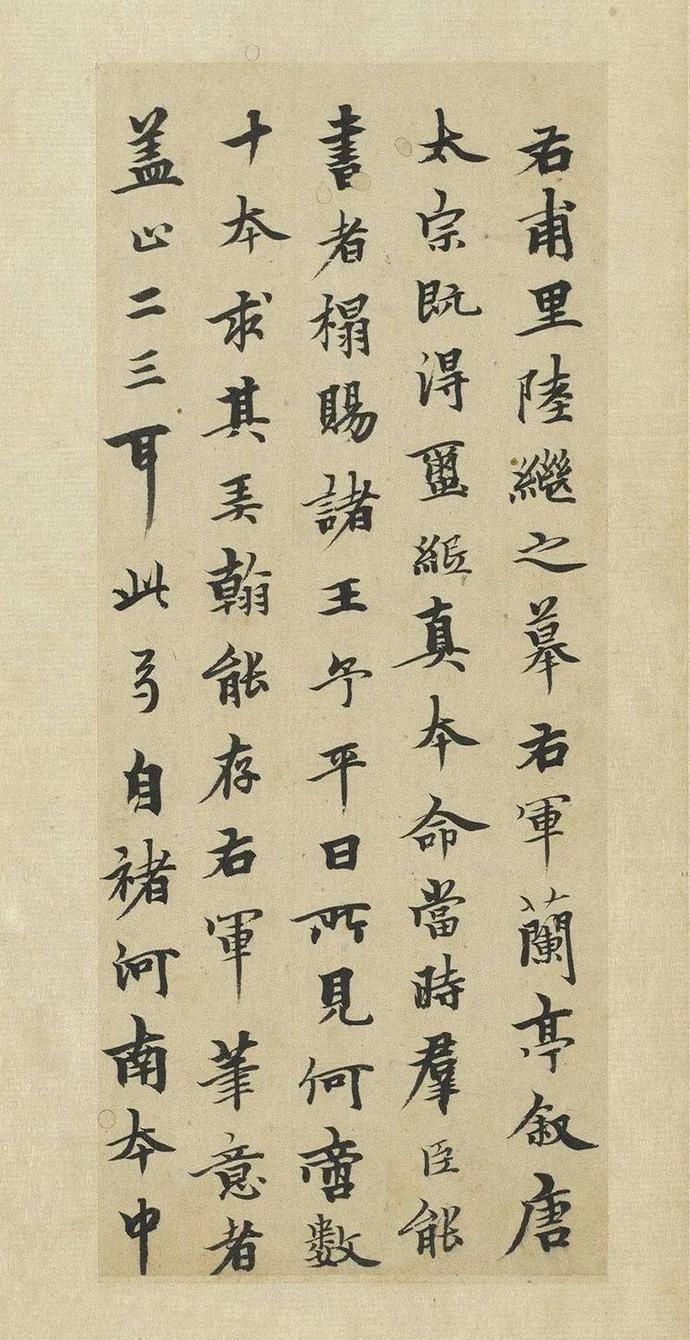 右甫里陸繼之摹右軍蘭亭叙唐
太宗既得蠒紙真本命當時羣臣能
書者搨賜諸王予平日所見何啻數
十本求其弄翰能存右軍筆意者
蓋止二三耳此卷自褚河南本中